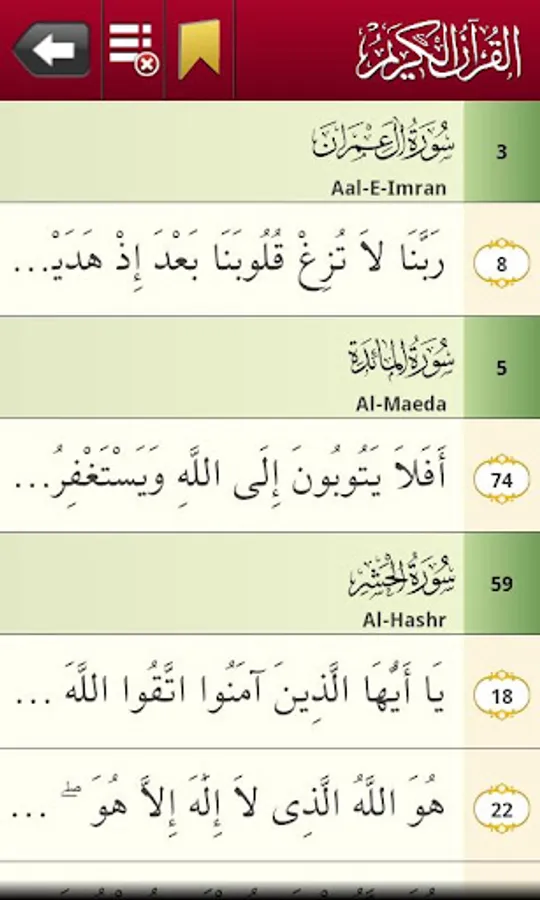 القرآن الكريم
سورة آل عمران
3
Aal-E-Imran
رَبَّنَا لاَ تُزِغْ قُلُوبَنَا بَعْدَ إِذْ هَدَيْ...
8
سورة المائدة
5
Al-Maeda
أَفَلاَ يَتُوبُونَ إِلَى اللَّهِ وَيَسْتَغْفِرُ...
74
سورة الحشر
59
Al-Hashr
يَا أَيُّهَا الَّذِينَ آمَنُوا اتَّقُوا اللَّهَ ...
18
هُوَ اللَّهُ الَّذِى لاَ إِلَٰهَ إِلاَّ هُوَ ۖ ...
22